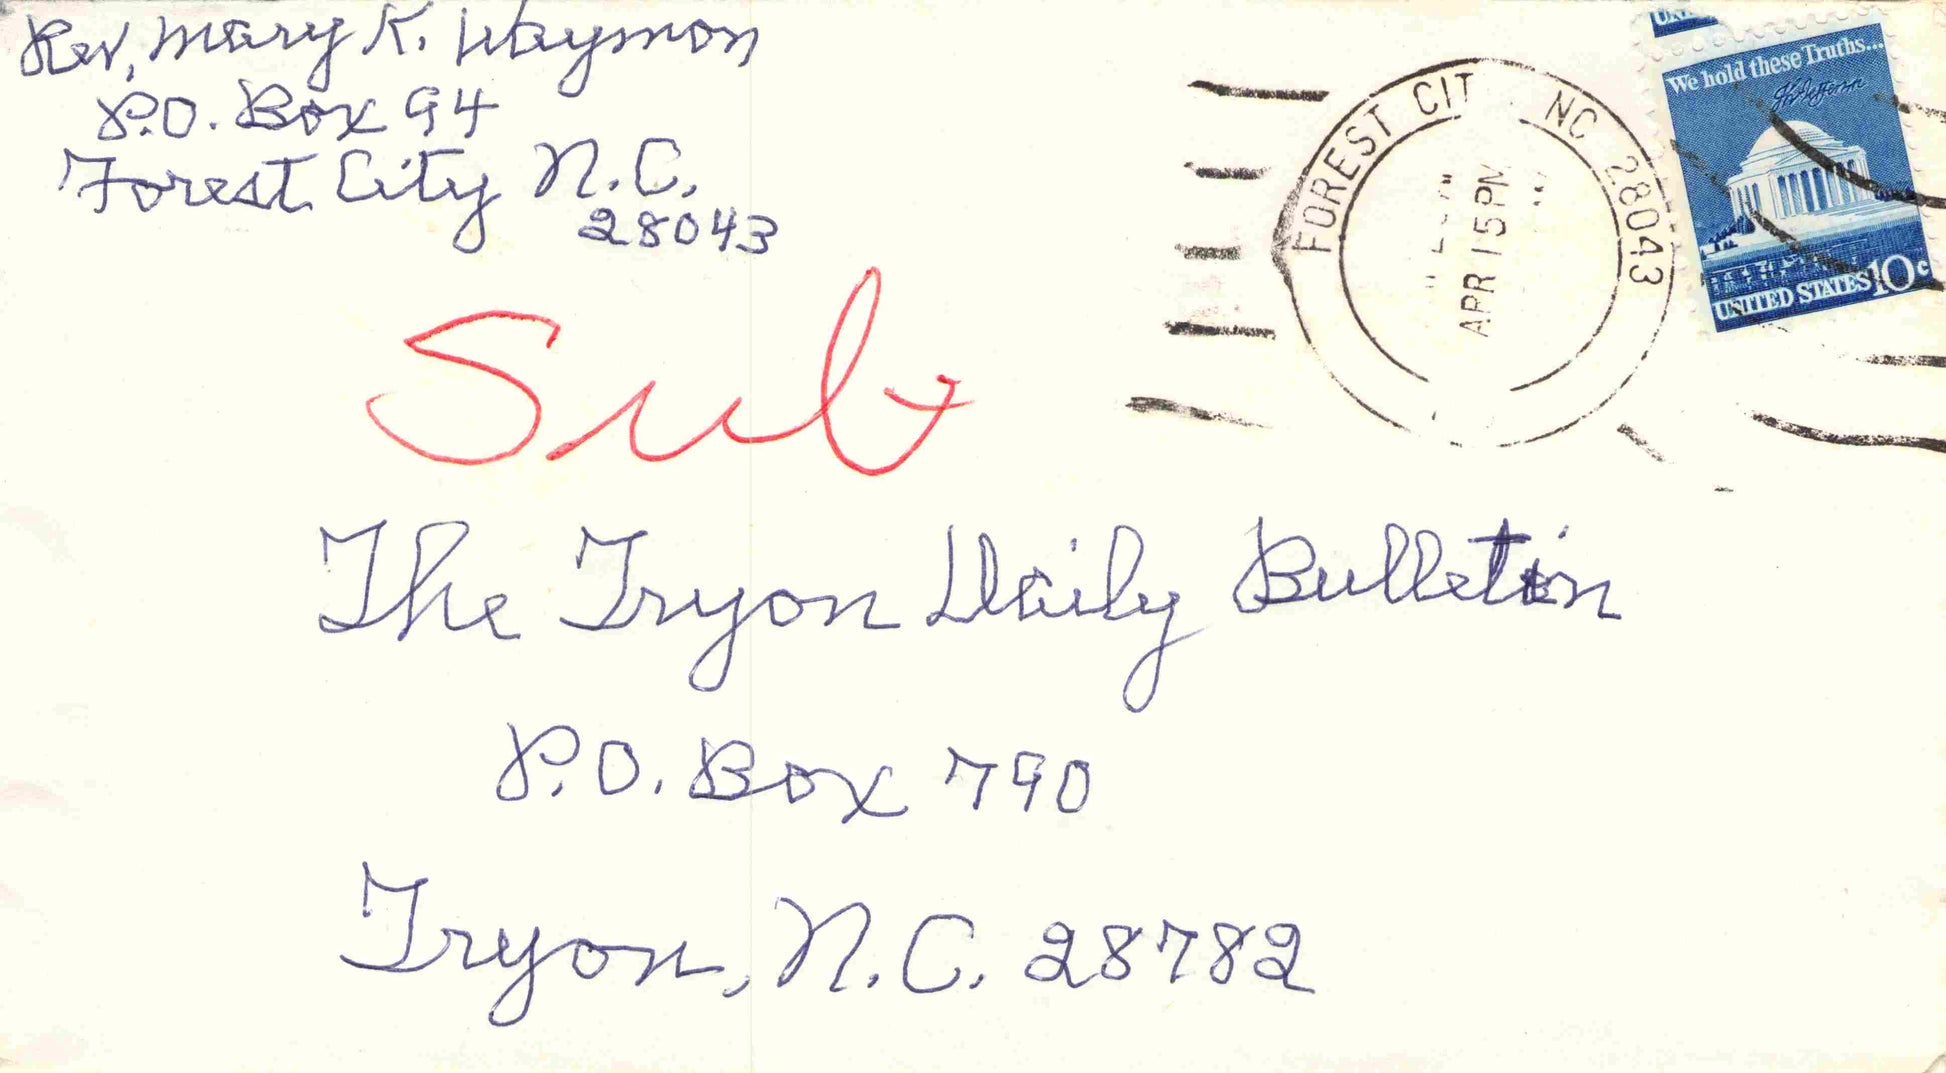 Rev, Mary K. Waymon
P.O. Box 94
Forest City N.C.
28043
FOREST CIT NC 28043
APR 15 PM
We hold these Truths...
Th Jefferson
UNITED STATES 10c
Sub
The Tryon Daily Bulletin
P.O. Box 790
Tryon, N.C. 28782